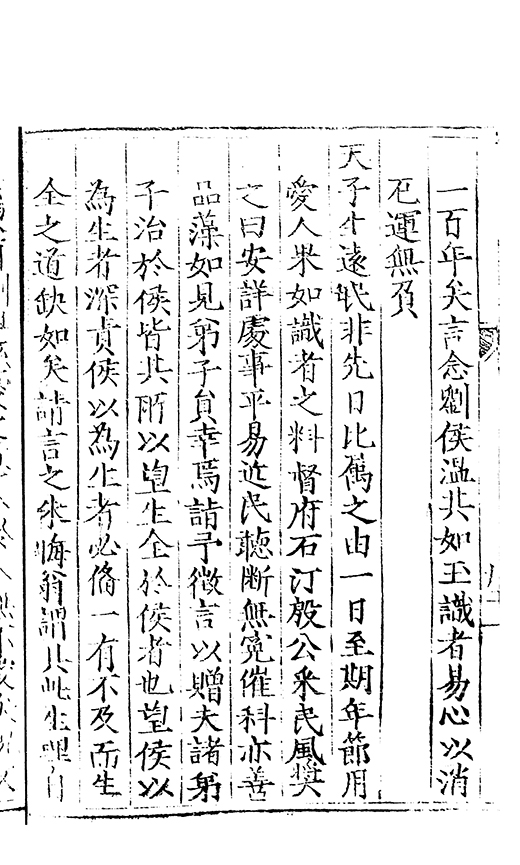 一百年矣言念劉侯温其如玉識者易心以消
冦運無頁
天子生遠氓非先日比舊之由一日至期年節用
愛人果如識者之料督府石汀殷公采民風奨
之曰安詳處事平易近民聴斷無寃催科亦善
品藻如見弟子員幸焉請予微言以贈夫諸弟
子治於侯皆其所以望生全於侯者也望侯以
為生者深責侯以為生者必脩一有不及而生
全之道缺如矣請言之朱晦翁謂具此生理自